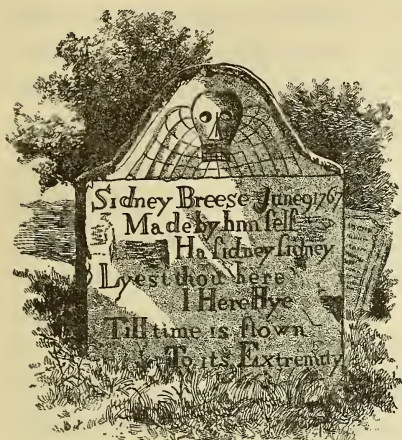 Sidney Breese June 9 1767
Made by himself
Ha Sidney Sidney
Lyest thou here
I Here Hye
Till time is flown
To its Extremity